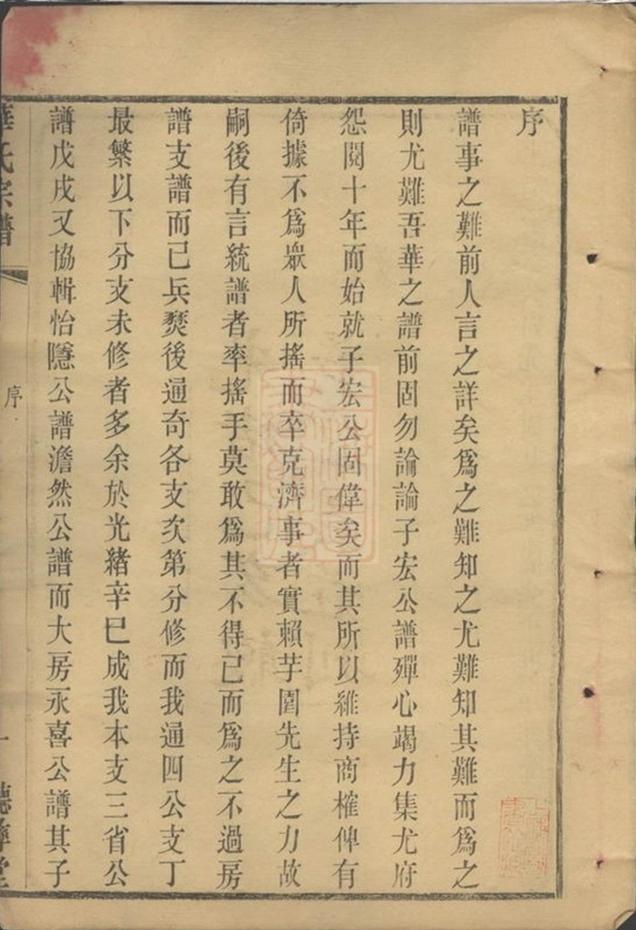 序
譜事之難前人言之詳矣爲之難知之尤難知其難而爲之
則尤難吾華之譜前固勿論論子宏公譜殫心竭力集尤府
怨閱十年而始就子宏公固偉矣而其所以維持商榷俾有
倚據不爲眾人所搖而卒克濟事者實賴芋園先生之力故
嗣後有言統譜者率搖手莫敢爲其不得已而爲之不過房
譜支譜而已兵燹後通奇各支次第分修而我通四公支丁
最繁以下分支未修者多余於光緒辛巳成我本支三省公
譜戊戌又協輯怡隱公譜澹然公譜而大房永喜公譜其子
華氏宗譜
序
一